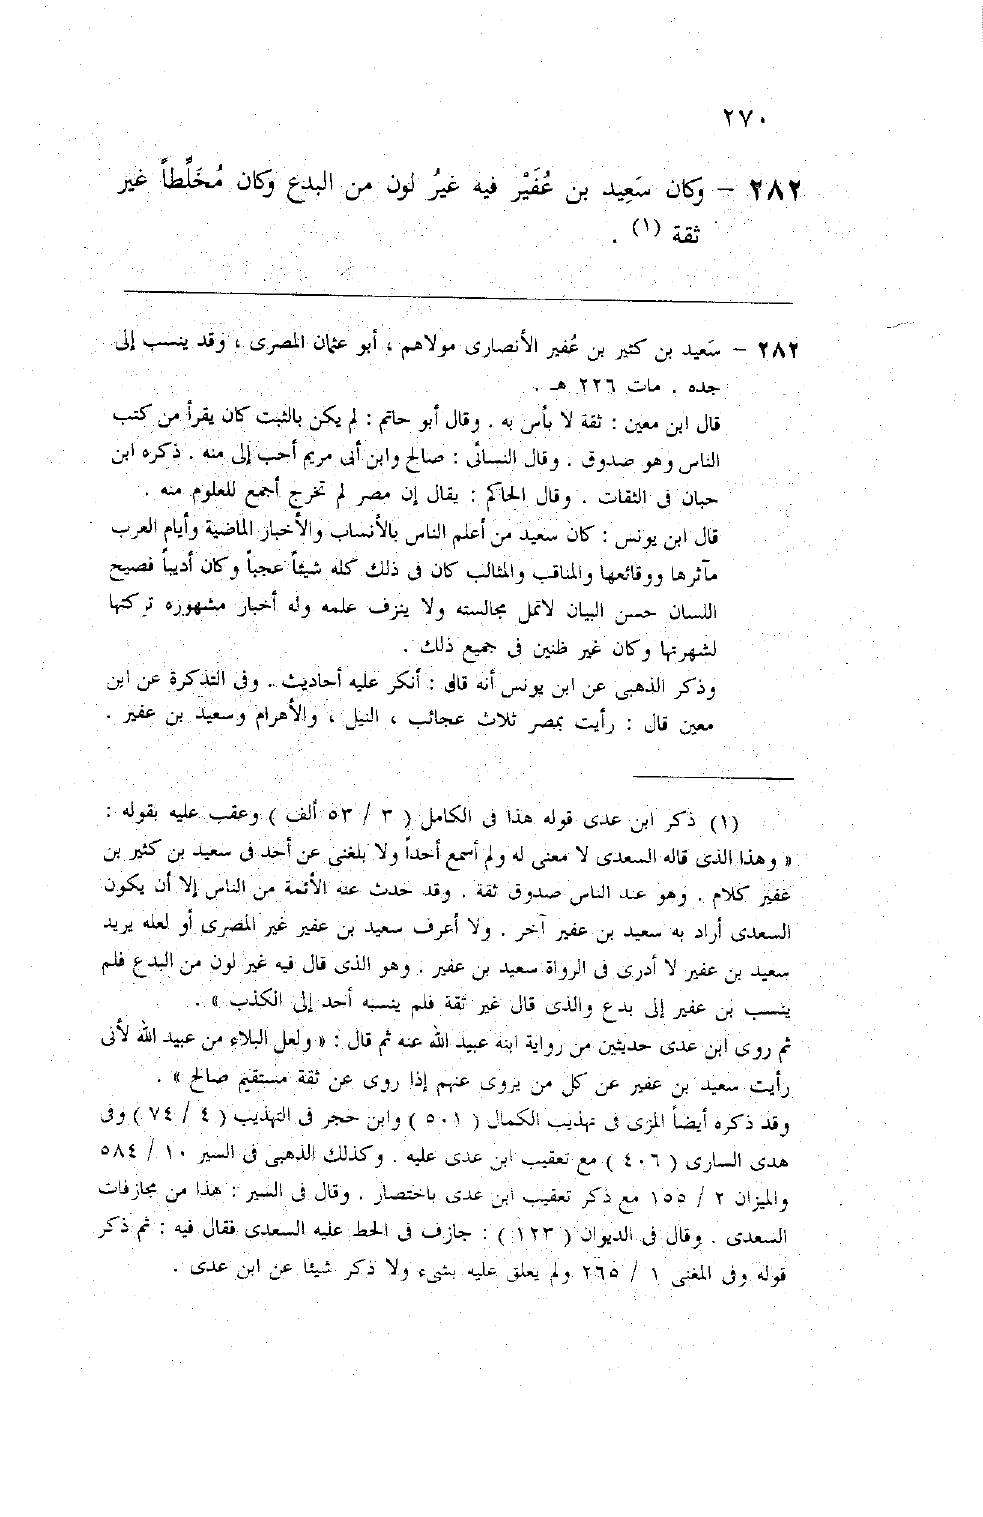 ٢٧٠
٢٨٢ – وكان سَعِيد بن عُفَيْر فيه غيرُ لون من البدع وكان مُخَلِّطاً غير
ثقة (١) .
٢٨٢ – سَعيد بن كثير بن عُفير الأنصارى مولاهم ، أبو عثمان المصرى ، وقد ينسب إلى
جده . مات ٢٢٦ هـ .
قال ابن معين : ثقة لا بأس به . وقال أبو حاتم : لم يكن بالثبت كان يقرأ من كتب
الناس وهو صدوق . وقال النسائى : صالح وابن أبى مريم أحب إلى منه . ذكره ابن
حبان فى الثقات . وقال الحاكم : يقال إن مصر لم تخرج أجمع للعلوم منه .
قال ابن يونس : كان سعيد من أعلم الناس بالأنساب والأخبار الماضية وأيام العرب
مآثرها ووقائعها والمناقب والمثالب كان فى ذلك كله شيئاً عجباً وكان أديباً فصيح
اللسان حسن البيان لاتمل مجالسته ولا ينزف علمه وله أخبار مشهوره تركتها
لشهرتها وكان غير ظنين فى جميع ذلك .
وذكر الذهبى عن ابن يونس أنه قال : أنكر عليه أحاديث . وفى التذكرة عن ابن
معين قال : رأيت بمصر ثلاث عجائب ، النيل ، والأهرام وسعيد بن عفير .
(١) ذكر ابن عدى قوله هذا فى الكامل ( ٣ / ٥٣ ألف ) وعقب عليه بقوله :
« وهذا الذى قاله السعدى لا معنى له ولم أسمع أحداً ولا بلغنى عن أحد فى سعيد بن كثير بن
عفير كلام . وهو عند الناس صدوق ثقة . وقد حدث عنه الأئمة من الناس إلا أن يكون
السعدى أراد به سعيد بن عفير آخر . ولا أعرف سعيد بن عفير غير المصرى أو لعله يريد
سعيد بن عفير لا أدرى فى الرواة سعيد بن عفير . وهو الذى قال فيه غير لون من البدع فلم
ينسب بن عفير إلى بدع والذى قال غير ثقة فلم ينسبه أحد إلى الكذب » .
ثم روى ابن عدى حديثين من رواية ابنه عبيد الله عنه ثم قال : « ولعل البلاء من عبيد الله لأنى
رأيت سعيد بن عفير عن كل من يروى عنهم إذا روى عن ثقة مستقيم صالح » .
وقد ذكره أيضاً المزى فى تهذيب الكمال ( ٥٠١ ) وابن حجر فى التهذيب ( ٤ / ٧٤ ) وفى
هدى السارى ( ٤٠٦ ) مع تعقيب ابن عدى عليه . وكذلك الذهبى فى السير ١٠ / ٥٨٤
والميزان ٢ / ١٥٥ مع ذكر تعقيب ابن عدى باختصار . وقال فى السير : هذا من مجازفات
السعدى . وقال فى الديوان ( ١٢٣ ) : جازف فى الحط عليه السعدى فقال فيه : ثم ذكر
قوله وفى المغنى ١ / ٢٦٥ ولم يعلق عليه بشىء ولا ذكر شيئا عن ابن عدى .